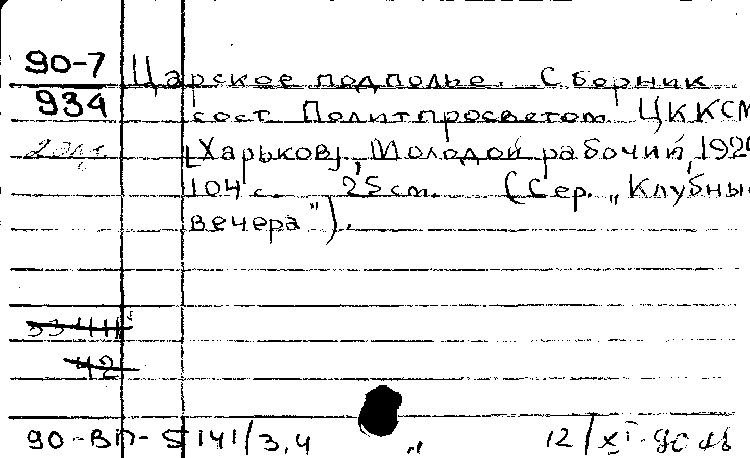 90-7 Царское подполье. Сборник
934 сост. Политпросветом ЦККСМ
[Харьков], Молодой рабочий, 192
104 с. 25 см. (Сер. „Клубны
вечера").
42
90-ВП-5141/3,4 " 12/XI-90